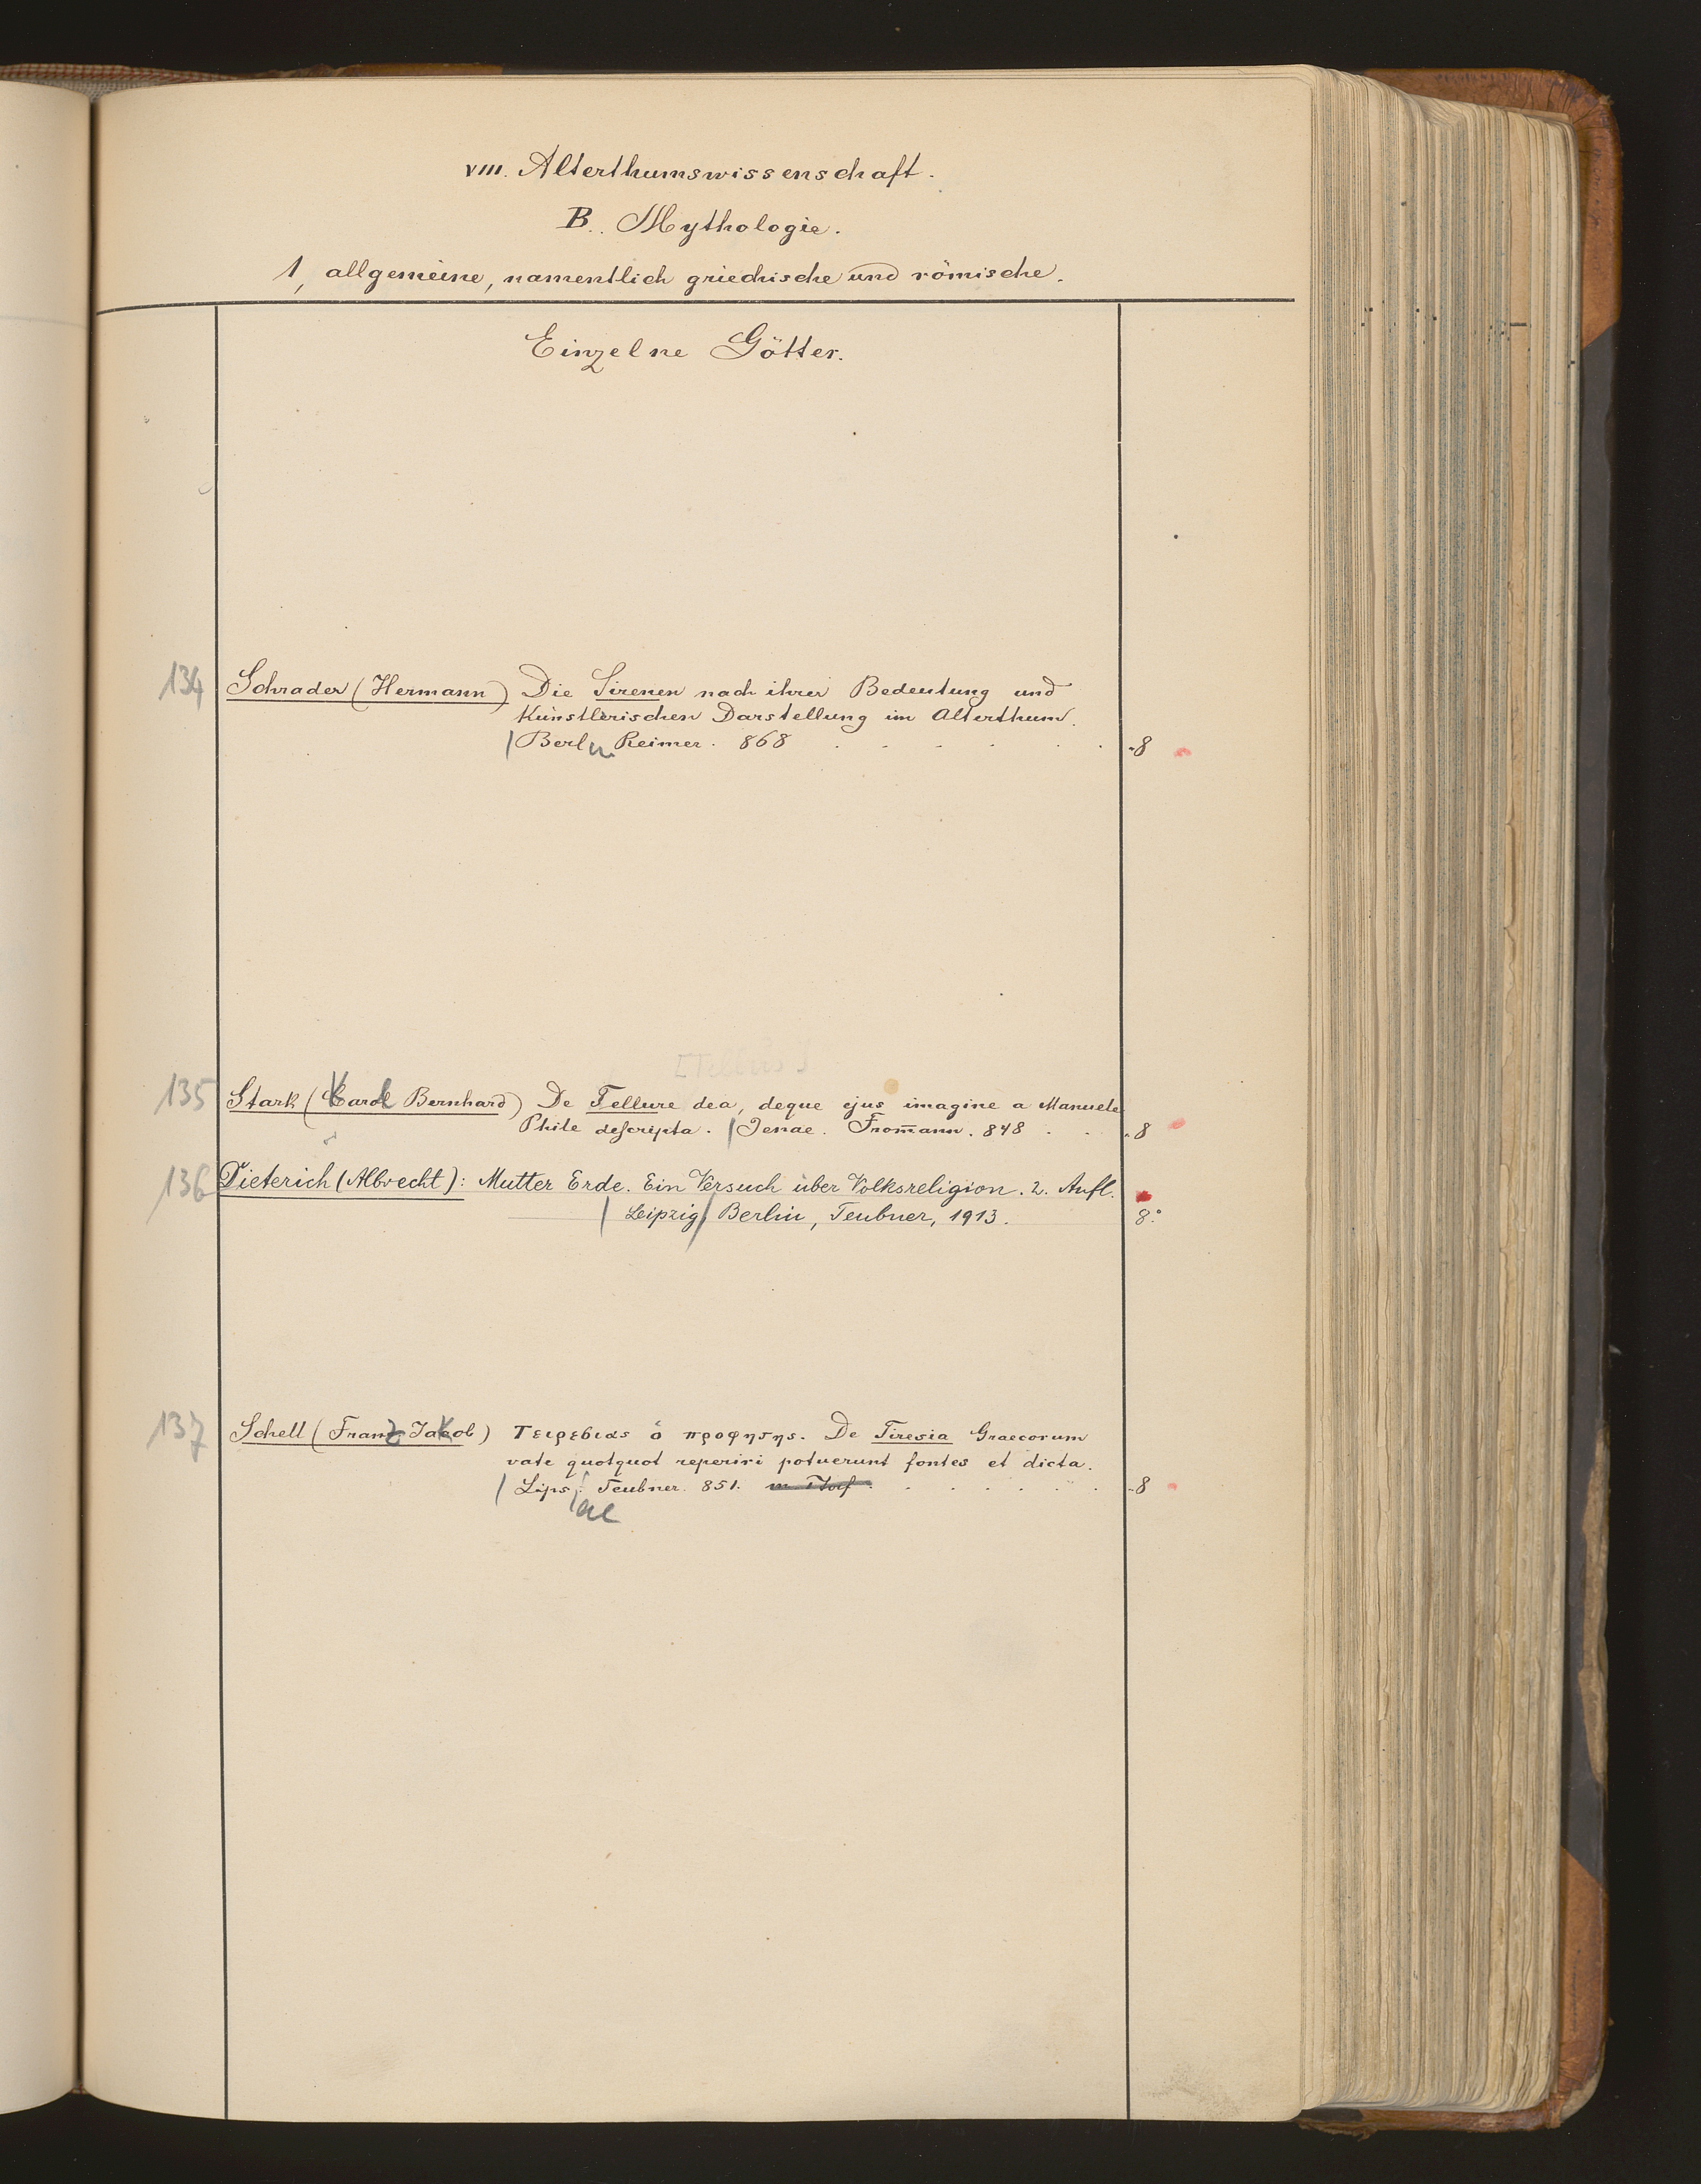 VIII. Alterthumswissenschaft.
B. Mythologie.
1, allgemeine, namentlich griechische und römische.
Einzelne Götter.
134 Schrader (Hermann) Die Sirenen nach ihrer Bedeutung und
künstlerischen Darstellung im Alterthum.
Berlin Reimer. 868 . . . . . . 8
[Tellus]
135 Stark (Karl Bernhard) De Tellure dea, deque ejus imagine a Manuele
Phile descripta. Jenae. Fromann. 848 . . . 8
136 Dieterich (Albrecht): Mutter Erde. Ein Versuch über Volksreligion. 2. Aufl.
Leipzig, Berlin, Teubner, 1913. 8°
137 Schell (Franz Jakob) Τειρεσιας ὁ προφητης. De Tiresia Graecorum
vate quotquot reperiri potuerunt fontes et dicta.
Lipsiae Teubner. 851. . . . . . . 8